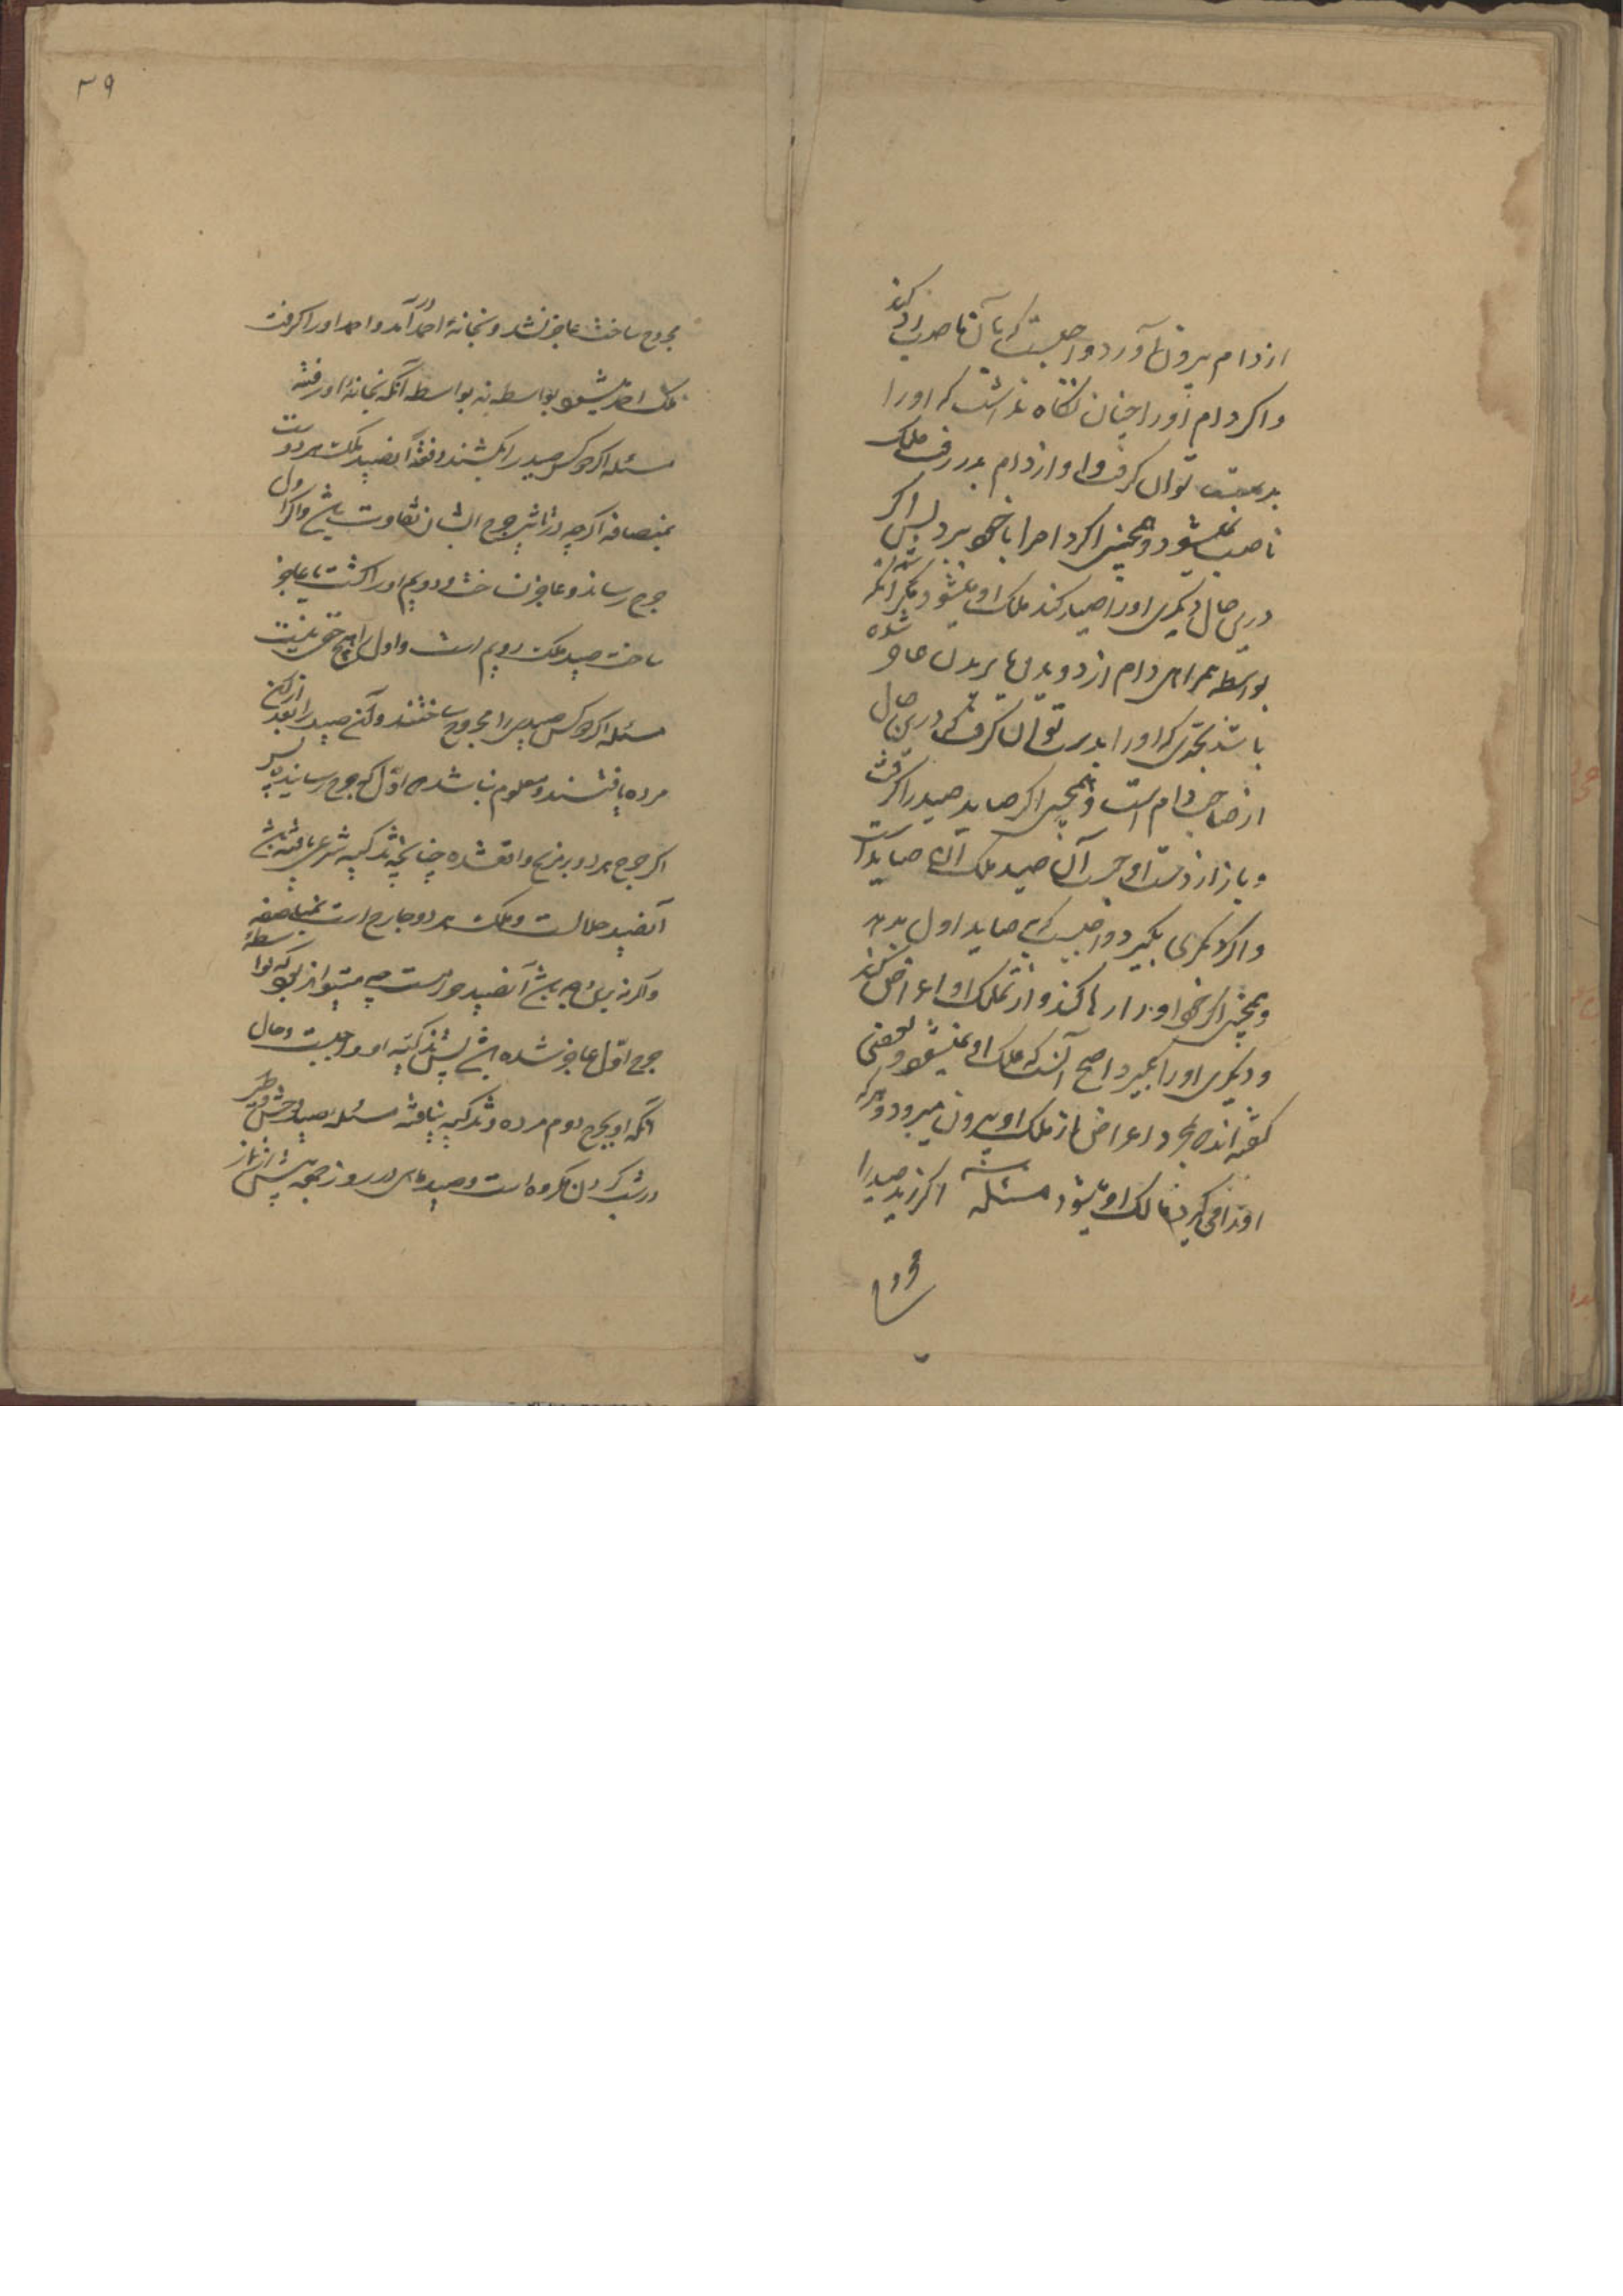 از دام بیرون آورد واجبست که بآن ناصب رد کند
و اگر دام او را چنان نگاه نداشت که او را
بدست توان گرفت و او از دام بدر رفت ملک
ناصب نمیشود و همچنین اگر دام را با خود ببرد پس اگر
درین حال دیگری او را صید کند ملک او میشود مگر آنکه
بواسطه همراهی دام از دویدن یا پریدن عاجز شده
باشد بنحوی که او را بدست توان گرفت که درین حال
از صاحب دام است و همچنین اگر صاید صید را گرفت
و باز از دست او جست آن صید ملک آن صاید است
و اگر دیگری بگیرد واجبست که بصاید اول بدهد
و همچنین اگر خود او را رها کند و از تملک او اعراض کند
و دیگری او را بگیرد اصح آنست که ملک او نمیشود و بعضی
گفته اند که بمجرد اعراض از ملک او بیرون میرود و هر که
او را می گیرد مالک او میشود مسئله اگر زید صید را
مجروح
۳۹
مجروح ساخت عاجز نشد و بخانهٔ احمد در آمد و احمد او را گرفت
ملک احمد میشود بواسطه نه بواسطه آنکه بخانهٔ او رفته
مسئله اگر دو کس صید را بکشند دفعة آنصید ملک هر دوست
بمناصفه اگر چه در تاثیر جرح ایشان تفاوت باشد و اگر اول
جرح رساند و عاجز نساخت و دویم او را کشت یا عاجز
ساخت صید ملک دویم است و اول را هیچ حقی نیست
مسئله اگر دو کس صیدی را مجروح ساختند و آن صید را بعد از آن
مرده یافتند و معلوم نباشد که اول که جرح رسانیده پس
اگر جرح هر دو بر مذبح واقعشده چنانچه تذکیه شرعی یافته باشد
آنصید حلالست و ملک هر دو جارح است بمناصفه
و اگر نه این وجه باشد آنصید حرامست چه میتواند بود که بواسطهٔ
جرح اول عاجز شده باشد پس تذکیه او واجبست و حال
آنکه او بجرح دوم مرده و تذکیه نیافته مسئله صید وحش و طیر
در شب کردن مکروه است و صید ماهی در روز جمعه پیش از نماز